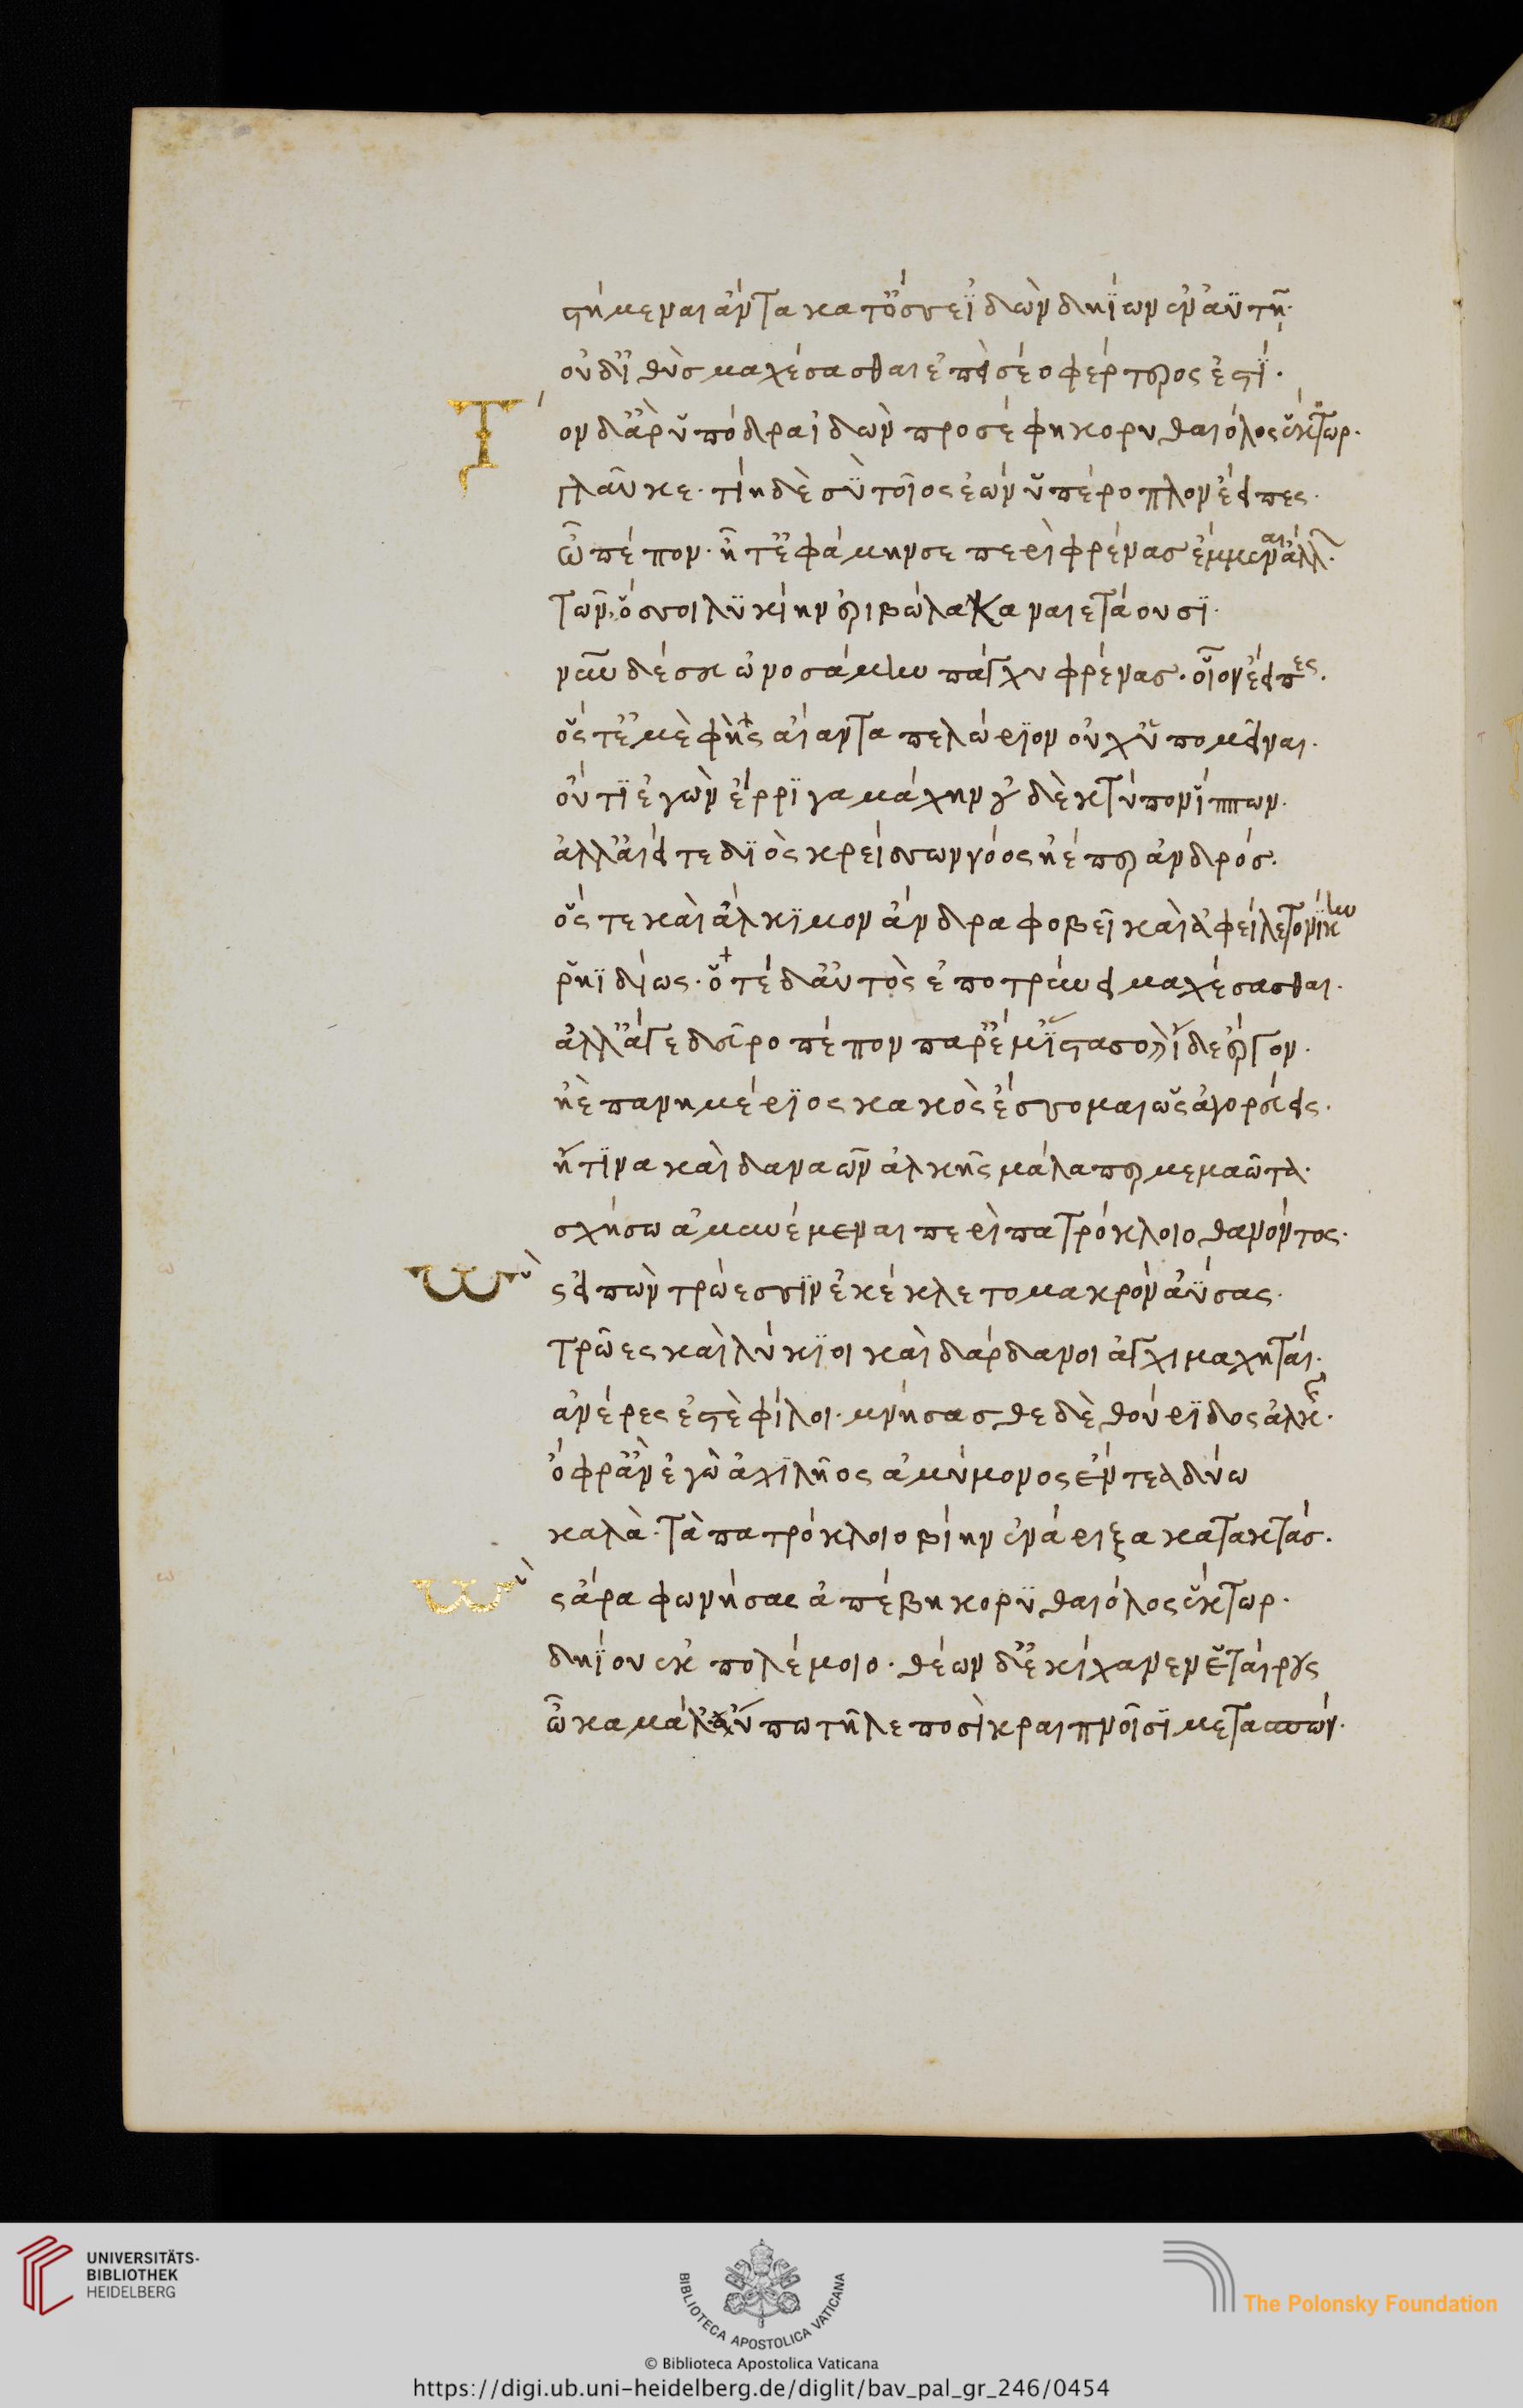 στήμεναι ἄντα κατ' ὄσσε ϊδὼν δηΐων ἐν ἀϋτῆ·
οὐδ' ϊθὺσ μαχέσασθαι ἐπεὶ σέο φέρτερος ἐστΐ·
Τὸν δ' ἂρ ὑπόδρα ἰδὼν προσέφη κορυθαιόλος ἕκτωρ·
γλαῦκε· τίη δὲ σὺ τοῖος ἐὼν ὑπέροπλον ἔειπες·
ὦ πέπον· ἦ τ' ἐφάμην σε περὶ φρένας ἔμμεναι ἄλλ·
τῶν, ὅσσοι λϋκίην ἐριβώλακα ναιετάουσϊ·
νῦν δέ σευ ὠνοσάμην πάγχυ φρένασ· οἷον ἔειπες·
ὅς τέ με φῂς αἴαντα πελώριον οὐχ ὑπομεῖναι·
οὔ τϊ ἐγὼν ἔρριγα μάχην οὐδὲ κτύπον ἵππων·
ἀλλ' αἰεί τε δϊὸς κρείσσων νόος ἠέ περ ἀνδρόσ·
ὅς τε καὶ ἄλκϊμον ἄνδρα φοβεῖ καὶ ἀφείλετο νίκην
ῥηϊδίως· ὁτὲ δ' αὐτὸς ἐποτρύνει μαχέσασθαι·
ἀλλ' ἄγε δεῦρο πέπον παρ' ἔμ' ἵστασο καὶ ἴδε ἔργον·
ἠὲ πανημέριος κακὸς ἔσσομαι ὡς ἀγορεύεις·
ἤ τϊνα καὶ δαναῶν ἀλκῆς μάλα περ μεμαῶτα·
σχήσω ἀμυνέμεναι περὶ πατρόκλοιο θανόντος·
Ὣς εἰπὼν τρώεσσϊν ἐκέκλετο μακρὸν ἀΰσας·
τρῶες καὶ λύκϊοι καὶ δάρδανοι ἀγχιμαχηταί·
ἀνέρες ἐστὲ φίλοι· μνήσασθε δὲ θούριδος ἀλκῆς·
ὄφρ' ἂν ἐγὼ ἀχιλῆος ἀμύμονος ἔντεα δύω
καλὰ· τὰ πατρόκλοιο βίην ἐνάριξα κατακτάσ·
Ὣς ἄρα φωνήσας ἀπέβη κορϋθαιόλος ἕκτωρ·
δηΐου ἐκ πολέμοιο· θέων δ' ἐκίχανεν ἑταίρους
ὦκα μάλ' οὔπω τῆλε ποσὶ κραιπνοῖσϊ μετασπών·
UNIVERSITÄTS-
BIBLIOTHEK
HEIDELBERG
BIBLIOTECA APOSTOLICA VATICANA
The Polonsky Foundation
© Biblioteca Apostolica Vaticana
https://digi.ub.uni-heidelberg.de/diglit/bav_pal_gr_246/0454